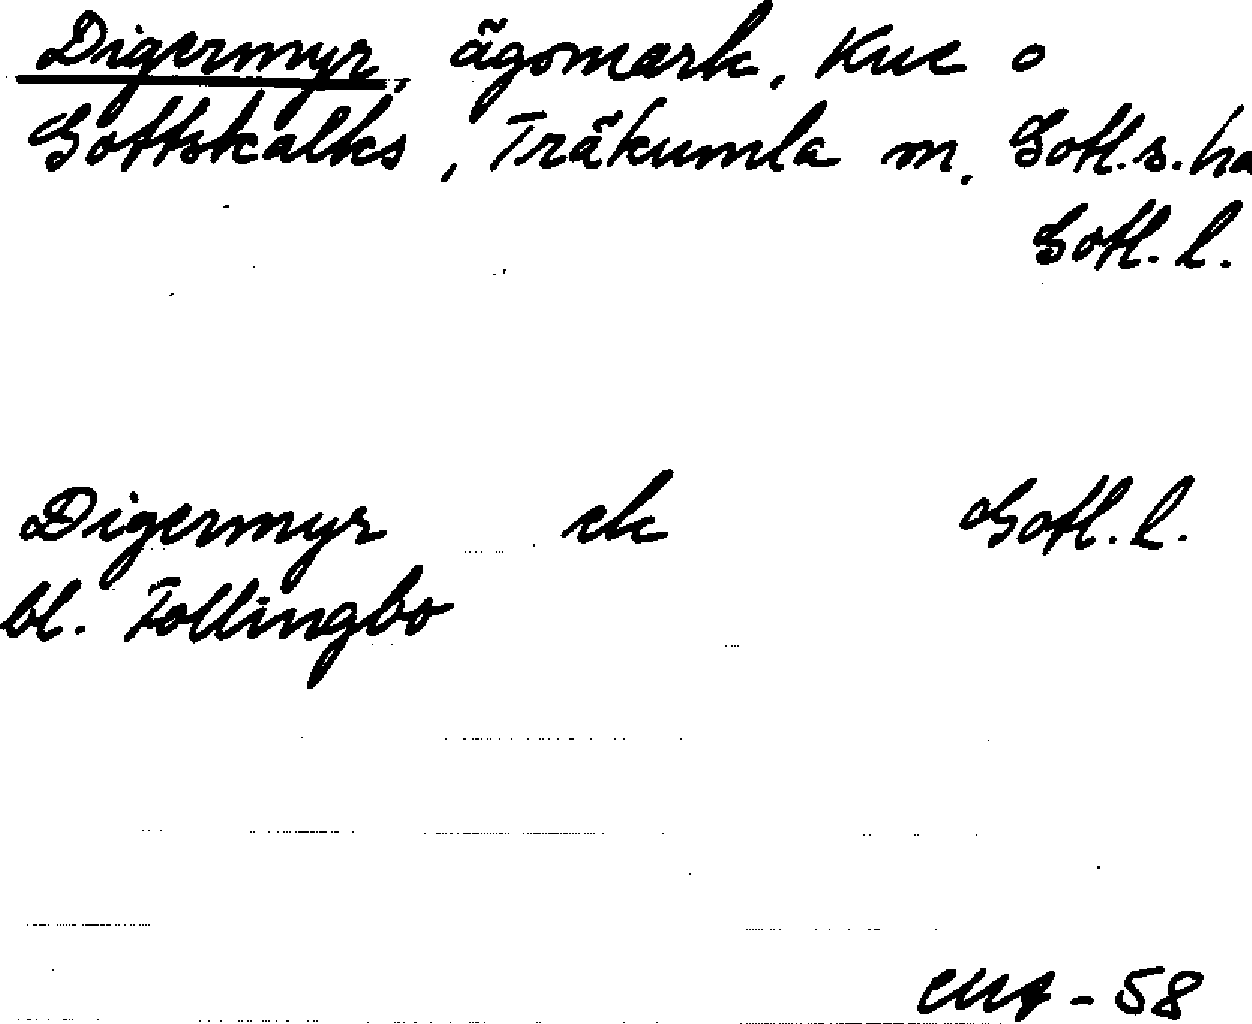 Digermyr, ägomark, Kue o
Gottskalks, Träkumla m. Gotl.s.hd
Gotl. l.
Digermyr ek Gotl. l.
bl. Follingbo
- 58